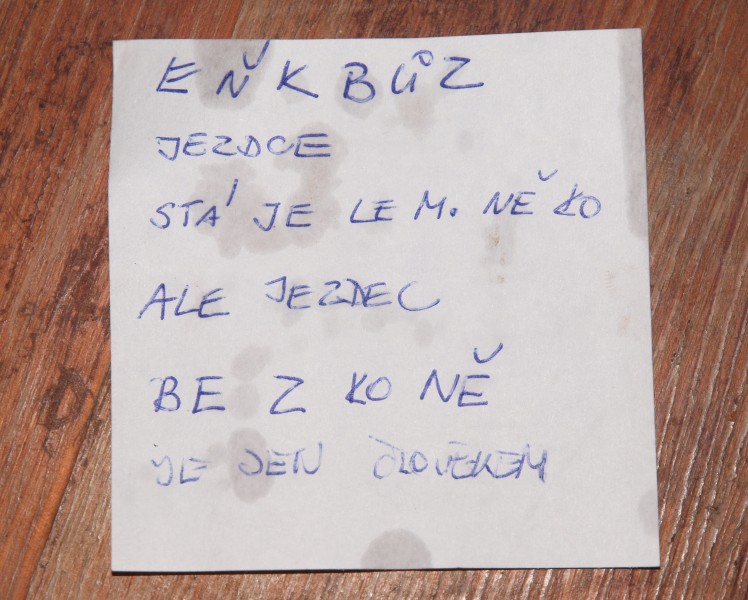 EŇK BŮZ
JEZDCE
STÁ JE LE M. NĚ KO
ALE JEZDEC
BE Z KO NĚ
JE JEN ČLOVĚKEM